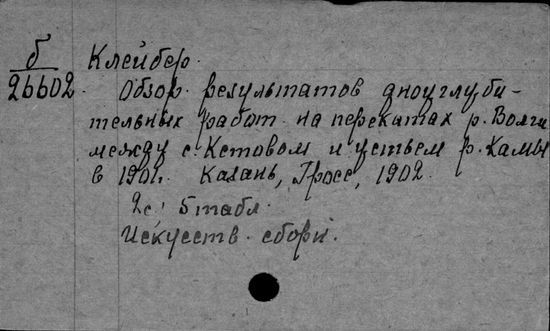 б
26602
Клейбер.
Обзор результатов дноуглуби-
тельных работ на перекатах р. Волги
между с. Кстовом и устьем р. Камы
в 1901г. Казань, Гросс, 1902.
2с. 5 табл.
Искусств. сборн.